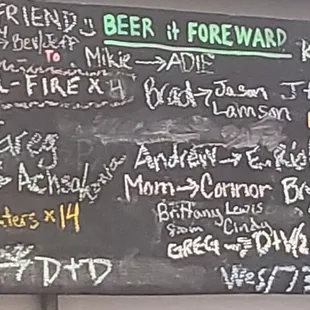 FRIEND :) BEER it FOREWARD
→ Bev/Jeff
To Mikie → ADIE
-FIRE x 4 Brad → Jason
Lamson
Greg
Andrew →
→ Achsah
Mom → Connor Br
ters x 14 Brittany Lewis
from Cindy
GREG → D+W/2
→ D+D Wes/7